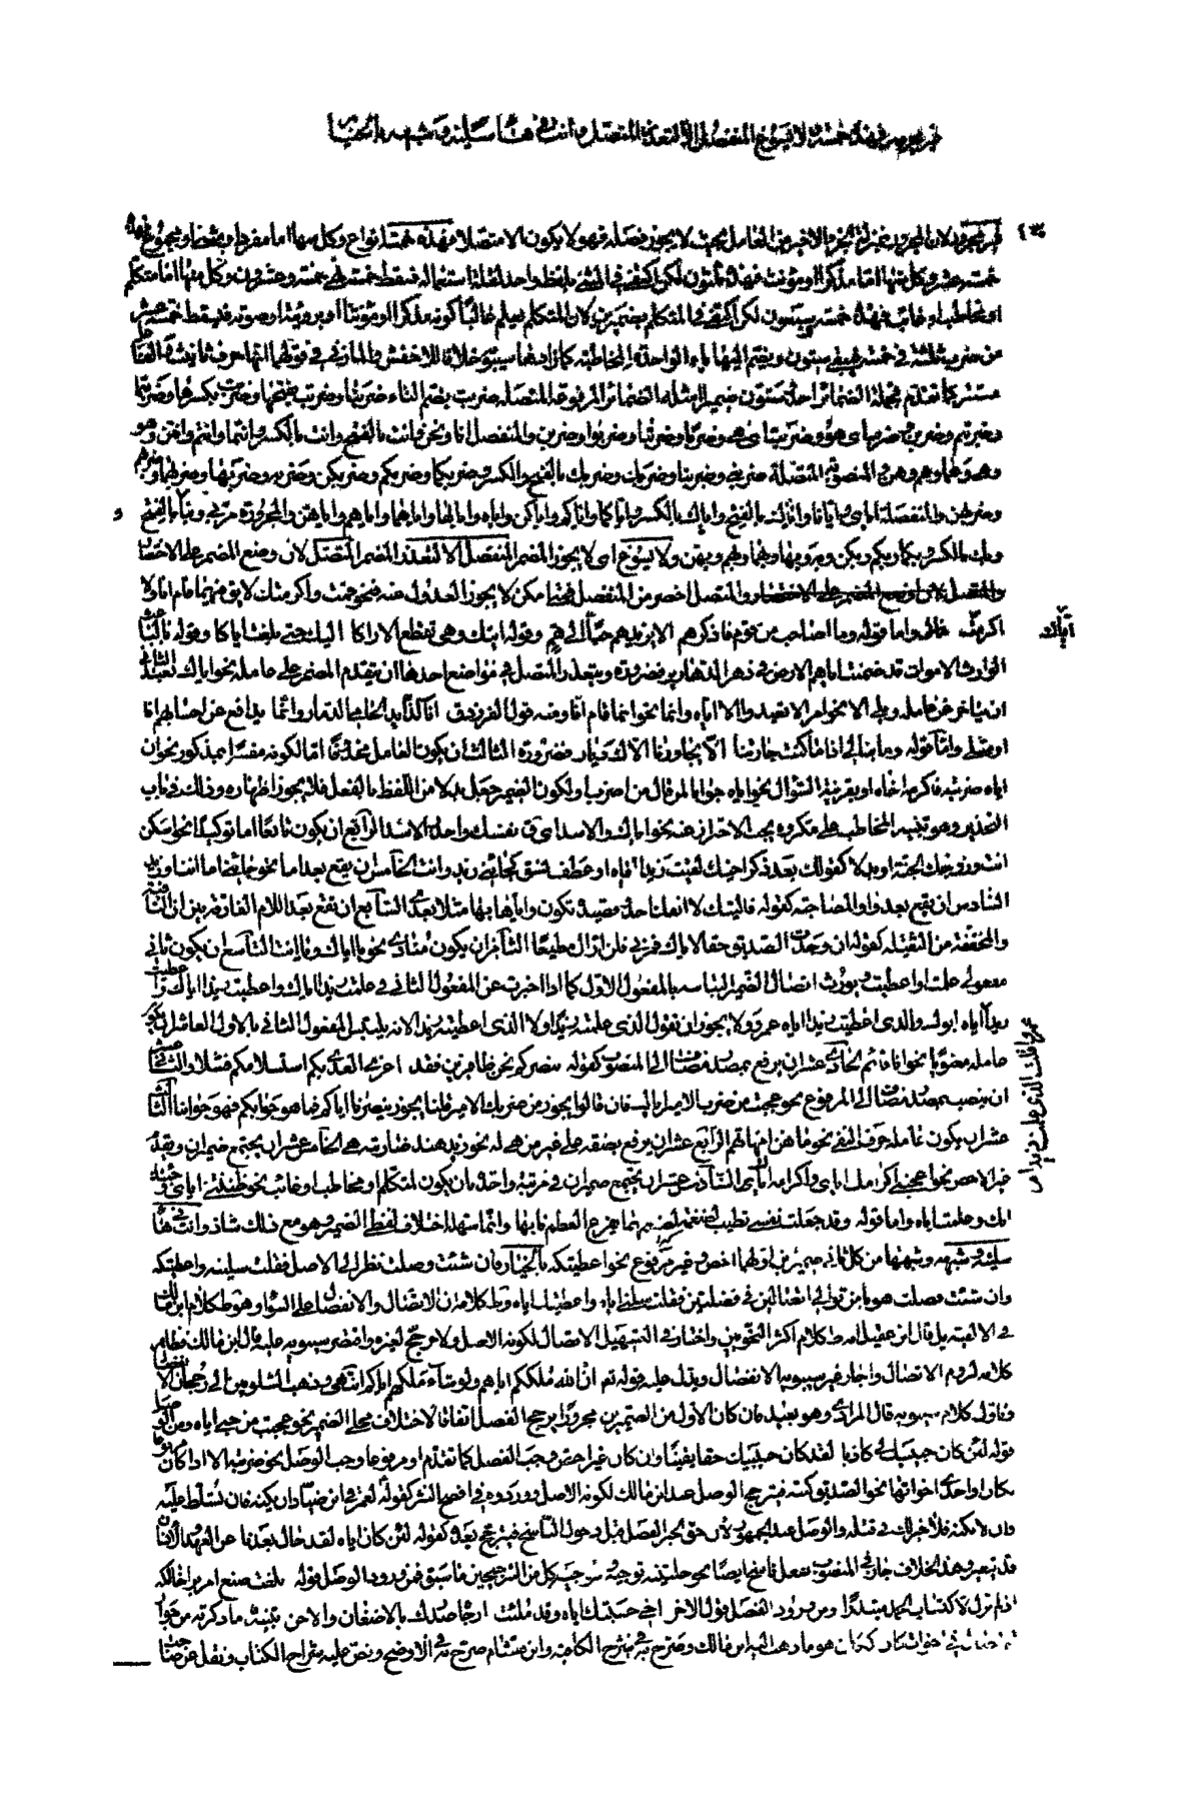 غير مجرور فهذه خمسة ولا يسوغ المنفصل الا لتعذر المتصل وانت في هاء سلنيه وشبهه بالخيار
غير مجرور لان المجرور بمنزلة الجزء الاخير من العامل بحيث لا يجوز فصله فهو لا يكون الا متصلا فهذه خمسة انواع وكل منها اما مفرد او مثنى او مجموع
خمسة عشر وكل منها اما مذكر او مؤنث فهذه ثلثون لكن اكتفى في المثنى بلفظ واحد لقلة استعماله فسقط خمسة بقي خمسة وعشرون وكل منها اما متكلم
او مخاطب او غائب فهذه خمسة وسبعون لكن اكتفى في المتكلم بضميرين لان المتكلم يعلم غالبا كونه مذكرا او مؤنثا او برؤيته او صوته فسقط خمسة عشر
من ضرب ثلثة في خمسة بقي ستون ويضم اليها ياء الواحدة المخاطبة كما زادها سيبويه خلافا للاخفش والمازني في قولهما انها حرف تانيث والفاعل
مستتر كما تقدم فجملة الضمائر احد وستون ضميرا امثلة الضمائر المرفوعة المتصلة ضربت بضم التاء ضربنا وضربت بفتحها وضربت بكسرها وضربتما
وضربتم وضربتن وضرب اى هو وضربت اى هي وضربا وضربتا وضربوا وضربن والمنفصل انا ونحن وانت بالفتح وانت بالكسر وانتما وانتم وانتن وهو
وهي وهما وهم وهن والمنصوبة المتصلة ضربني وضربنا وضربك وضربك بالفتح والكسر وضربكما وضربكم وضربكن وضربه وضربها وضربهما وضربهم
وضربهن والمنفصلة اياى وايانا واياك بالفتح واياك بالكسر واياكما واياكم واياكن واياه واياها واياهما واياهم واياهن والمجرورة مر بي وبنا وبك بالفتح
وبك بالكسر وبكما وبكم وبكن وبه وبها وبهما وبهم وبهن ولا يسوغ اى لا يجوز المضمر المنفصل الا لتعذر المضمر المتصل لان وضع المضمر على الاختصار
والمتصل اخصر من المنفصل فمتى امكن لا يجوز العدول عنه فنحو قمت واكرمتك لا يق فيهما قام انا ولا
اكرمت اياك واما قوله وما اصاحب من قوم فاذكرهم الا يزيدهم حبا الى هم وقوله اتتك وهي تقطع الاراكا اليك حتى بلغت اياكا وقوله بالباعث
الوارث الاموات قد ضمنت اياهم الارض في دهر الدهارير فضرورة ويتعذر المتصل في مواضع احدها ان يتقدم المضمر على عامله نحو اياك نعبد الثاني
ان يتاخر عن عامله ويلي الا نحو امر الا تعبدوا الا اياه وانما نحو انما قام انا ومنه قول الفرزدق انا الذائد الحامي الذمار وانما يدافع عن احسابهم انا
او مثلي واما قوله وما نبالي اذا ما كنت جارتنا الا يجاورنا الاك ديار فضرورة الثالث ان يكون العامل محذوفا اما لكونه مفسرا بمذكور نحو ان
اياه ضربته فاكرمه اخاه او بقرينة السؤال نحو اياه جوابا لمن قال من اضرب او لكون الضمير جعل بدلا من اللفظ بالفعل فلا يجوز اظهاره وذلك في باب
التحذير وهو تنبيه المخاطب على مكروه يجب الاحتراز عنه نحو اياك والاسد اى ق نفسك واحذر الاسد الرابع ان يكون تابعا اما توكيدا نحو اسكن
انت وزوجك الجنة او بدلا كقولك بعد ذكر اخيك لقيت زيدا اياه او عطف نسق كجاءني زيد وانت الخامس ان يقع بعد اما نحو جاءني اما انت او زيد
السادس ان يقع بعد واو المصاحبة كقوله فاليت لا انفك احذو قصيدة تكون واياها بها مثلا بعدي السابع ان يقع بعد اللام الفارقة بين ان النافية
والمخففة من الثقيلة كقوله ان وجدت الصديق حقا لاياك فمرني فلن ازال مطيعا الثامن ان يكون منادى نحو يا اياك ويا انت التاسع ان يكون ثاني
مفعولي علمت او اعطيت ويورث اتصال الضمير التباسه بالمفعول الاول كما اذا اخبرت عن المفعول الثاني في علمت زيدا اباك واعطيت زيدا اباك واعطيت
زيدا اياه ابوك والذى اعطيت زيدا اياه عمرو ولا يجوز ان تقول الذى علمته زيدا ولا الذى اعطيته زيدا لانه يلتبس المفعول الثاني بالاول العاشر ان يكون
عامله مضمرا نحو انا قائم الحادى عشر ان يرفع بمصدر مضاف الى المنصوب كقوله بنصركم نحن ظافرين فقد اغرى العدى بكم استسلامكم فشلا والثاني عشر
ان ينصب بمصدر مضاف الى المرفوع نحو عجبت من ضرب الامير اياك
عشر ان يكون عامله حرف النفي نحو ما هن امهاتهم الرابع عشر ان يرفع بصفة على غير من هي له نحو زيد هند ضاربته هي الخامس عشر ان يجتمع ضميران ويقدم
غير الاخص نحو اعجبني اكرامك اياي واكرامه اياك السادس عشر ان يجتمع ضميران في مرتبة واحدة بان يكون لمتكلم او مخاطب او غائب نحو ظننتني اياى
اياك وعلمته اياه واما قوله وقد جعلت نفسي تطيب لضغمة لضغمهماها يقرع العظم نابها وانما سهله اختلاف لفظي الضمير وهو مع ذلك شاذ وانت في هاء
سلنيه وشبهه وشبهها من كل ثاني ضميرين اولهما اخص وغير مرفوع نحو اعطيتكه بالخيار فان شئت وصلت نظرا الى الاصل فقلت سلنيه واعطيتكه
وان شئت فصلت هربا من توالي اتصالين في فضلتين فقلت سلني اياه واعطيتك اياه وظ كلامه ان الاتصال والانفصال على السواء وهو ظ كلام ابن مالك
في الالفية بل قال ابن عقيل انه ظ كلام اكثر النحويين واختار في التسهيل الاتصال لكونه الاصل ولا مرجح لغيره واقتصر سيبويه عليه قال ابن مالك فظاهر
كلامه لزوم الاتصال واجاز غير سيبويه الانفصال ويدل عليه قوله ان الله ملككم اياهم ولو شاء ملكهم اياكم انتهى وذهب الشلوبين الى رجحان الانفصال
وتاول كلام سيبويه قال المرادى وهو بعيد فان كان الاول من الضميرين مجرورا يرجح الفصل اتفاقا لاختلاف محلي الضمير نحو عجبت من حبي اياه ومن الوصل
قوله لئن كان حبك لي كاذبا لقد كان حبيك حقا يقينا وان كان غير اخص وجب الفصل كما تقدم او مرفوعا وجب الوصل نحو ضربته الا اذا كان
بكان او احدى اخواتها نحو الصديق كنته فيترجح الوصل عند ابن مالك لكونه الاصل ووروده في افصح النثر كقوله لعمر في ابن صياد ان يكنه فلن تسلط عليه
وان لا يكنه فلا خير لك في قتله والفصل عند الجمهور لان حق الخبر الفصل قبل دخول الناسخ فيترجح بعده كقوله لئن كان اياه لقد حال بعدنا عن العهد والانسان
قد يتغير وهذا الخلاف جار في المنصوب بفعل ناسخ ايضا نحو خلتنيه توجيه ترجيح كل من الترجيحين ما سبق فمن ورود الوصل قوله بلغت صنع امرئ بر اخالكه
اذ لم تزل لاكتساب الحمد مبتدرا ومن ورود الفصل قول الاخر اخي حسبتك اياه وقد ملئت ارجاء صدرك بالاضغان والاحن تنبيه ما ذكرته من جواز
هو ما ذهب اليه ابن مالك وصرح به في شرح الكافية وابن هشام صرح به في الاوضح ونص عليه شراح الكتاب ونقل عن